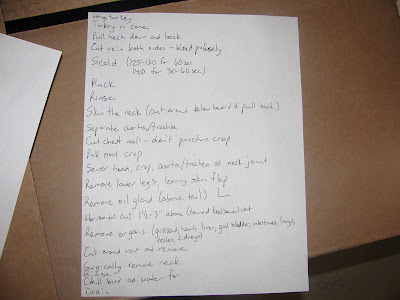 Weigh turkey
Turkey in cone
Pull neck down and back
Cut vein both sides - bleed profusely
Scald (125-130 for 60 sec
140 for 30-60 sec)
Pluck
Rinse
Skin the neck (cut around below beard & pull back)
Separate aorta/trachea
Cut chest wall - don't puncture crop
Pull out crop
Sever head, crop, aorta/trachea at neck joint
Remove lower legs, leaving skin flap
Remove oil gland (above tail)
Horizontal cut 1½-3" above (toward keelbone) vent
Remove organs (gizzard, heart, liver, gall bladder, intestines, lungs,
testes, kidneys)
Cut around vent and remove
Surgically remove neck
Rinse
Chill bird ice water for
Drain